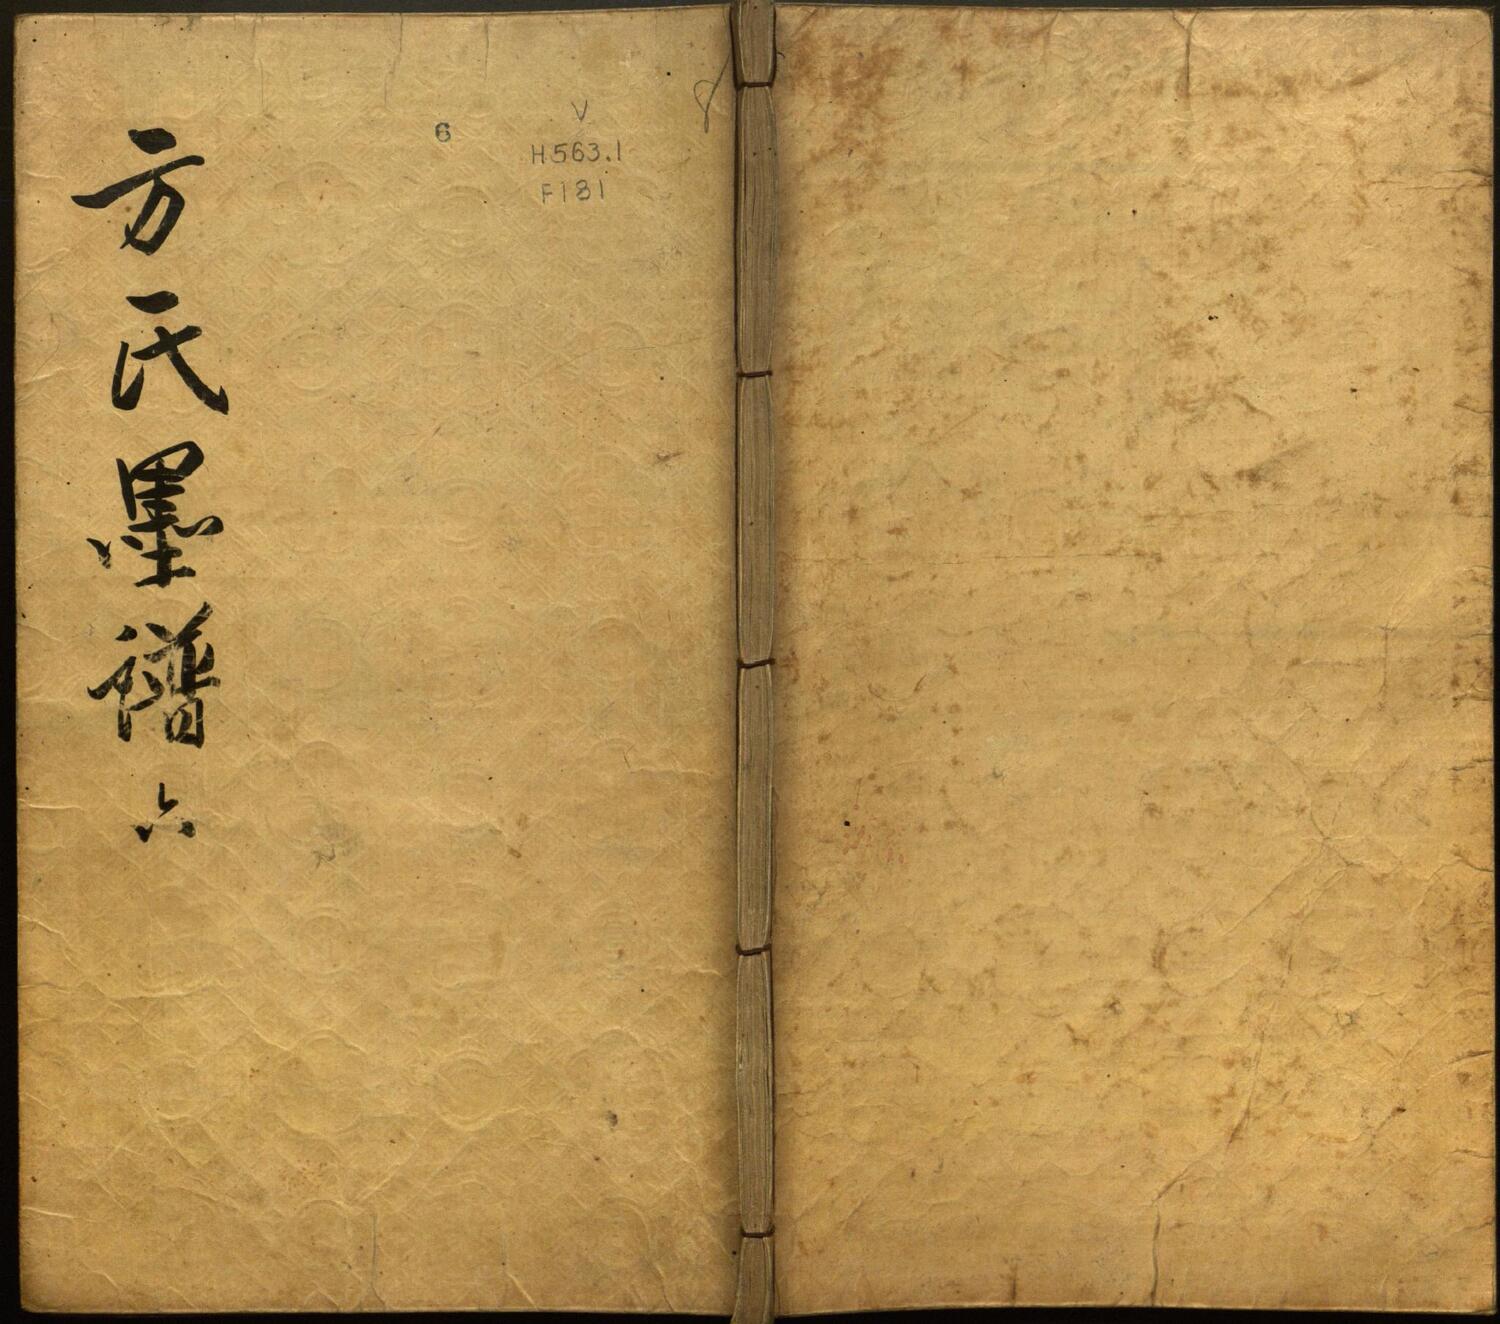 方氏墨譜 六
6
V
H563.1
F181
8